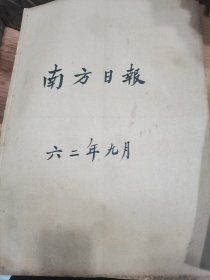 南方日報
六二年九月